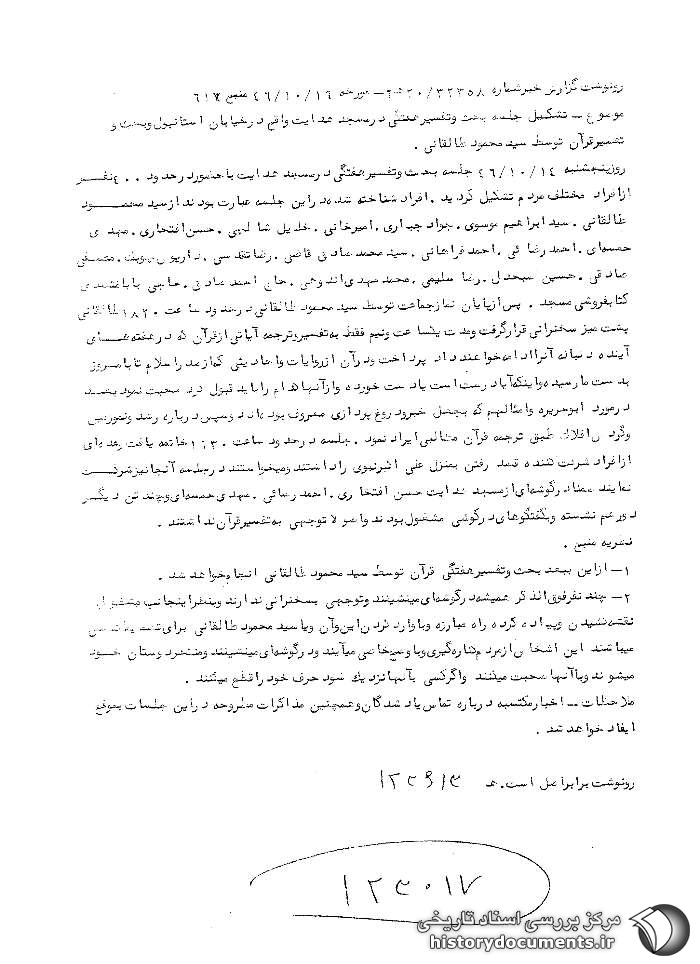 رونوشت گزارش خبر شماره ۳۲۳۵۸/۲۰هـ۲ - مورخه ۴۶/۱۰/۱۶ منبع ۶۱۷
موضوع – تشکیل جلسه بحث و تفسیر هفتگی در مسجد هدایت واقع در خیابان استانبول و بحث و
تفسیر قرآن توسط سید محمود طالقانی .
روز پنجشنبه ۴۶/۱۰/۱۴ جلسه بحث و تفسیر هفتگی در مسجد هدایت با حضور در حدود ۴۰۰ نفر
از افراد مختلف مردم تشکیل گردید . افراد شناخته شده در این جلسه عبارت بودند از سید محمود
طالقانی . سید ابراهیم موسوی . جواد جباری . امیرخانی . خلیل . حسن افتخاری . مهدی
حمسه‌ای . احمد رضائی . احمد فراهانی . سید محمد صادق قاضی . رضا تقدسی . داریوش . مصطفی
صادقی . حسین . رضا سلیمی . محمد مهدی . حاج احمد صادق . حاجی بابا
کتابفروشی مسجد . پس از پایان نماز جماعت توسط سید محمود طالقانی در حدود ساعت طالقانی
پشت میز سخنرانی قرار گرفت و مدت یکساعت و نیم فقط به تفسیر و ترجمه آیاتی از قرآن که در هفته‌های
آینده دنباله آنرا ادامه خواهند داد پرداخت و در آن از روایات و احادیثی که از صدر اسلام تا بامروز
بدست ما رسیده و اینکه آیا درست است یا دست خورده و آنها کدام را باید قبول کرد صحبت نمود بعد
در مورد ابوهریره و امثالهم که بجعل خبر و دروغ پردازی معروف بوده‌اند و سپس درباره رشد و
و گردش افلاک طبق ترجمه قرآن مطالبی ایراد نمود . جلسه در حدود ساعت خاتمه یافت و عده‌ای
از افراد شرکت کننده قصد رفتن بمنزل علی را داشتند و میخواستند در جلسه آنجا نیز شرکت
نمایند . در گوشه‌ای از مسجد هدایت حسن افتخاری . احمد رضائی . مهدی حمسه‌ای و چند تن دیگر
دور هم نشسته و بگفتگوهای درگوشی مشغول بودند و اصولا توجهی به تفسیر قرآن نداشتند .
نظریه منبع .
۱- از این ببعد بحث و تفسیر هفتگی قرآن توسط سید محمود طالقانی انجام خواهد شد .
۲- چند نفر فوق‌الذکر همیشه در گوشه‌ای مینشینند و توجهی بسخنرانی ندارند و بنظر اینجانب مشغول
نقشه کشیدن و پیاده کردن راه مبارزه و یا وارد کردن این و آن و یا سید محمود طالقانی برای
میباشند این اشخاص از مردم کناره‌گیری و با وضع خاصی میآیند و در گوشه‌ای مینشینند و منتظر دوستان خود
میشوند و با آنها صحبت میکنند و اگر کسی بآنها نزدیک شود حرف خود را قطع میکنند .
ملاحظات – اخبار مکتسبه درباره تماس یادشدگان و همچنین مذاکرات مطروحه در این جلسات بموقع
ایفاد خواهد شد .
رونوشت برابر اصل است .
۱۲۳۰۱۷
مرکز بررسی اسناد تاریخی
historydocuments.ir